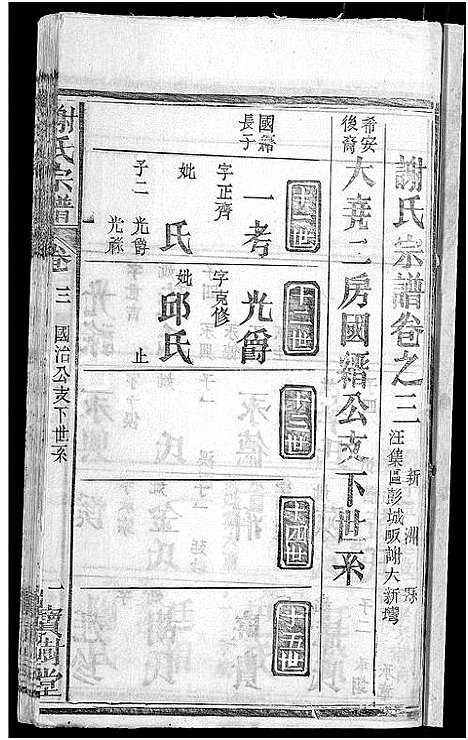 謝氏宗譜卷之三
新洲縣
汪集區彭城畈謝大新灣
希安
後裔
大堯二房國縉公支下世系
十一世
十二世
十三世
十四世
十五世
國縉
長子
一考
字正齊
妣
氏
子二
光爵
光祿
光爵
字克修
妣
邱氏
止
謝氏宗譜
卷三
國治公支下世系
一
寶樹堂